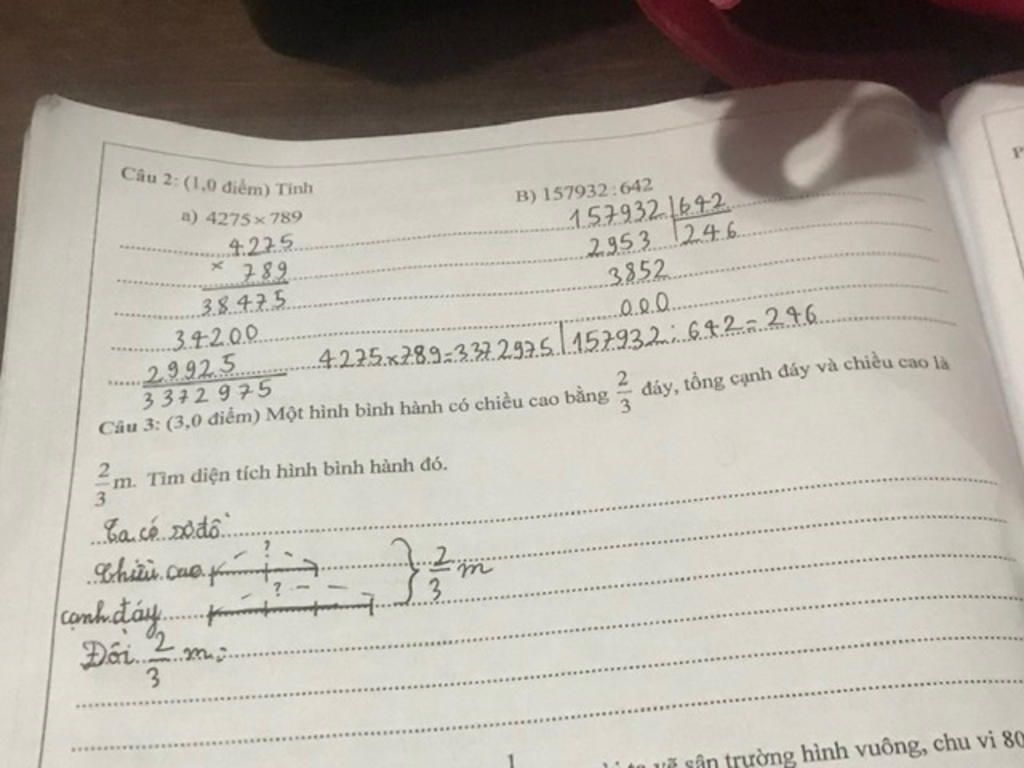 Câu 2: (1,0 điểm) Tính
a) 4275 × 789
B) 157932 : 642
4275
× 789
38475
34200
29925
3372975
157932 | 642
2953 246
3852
000
4275 × 789 = 3372975 | 157932 : 642 = 246
Câu 3: (3,0 điểm) Một hình bình hành có chiều cao bằng 2/3 đáy, tổng cạnh đáy và chiều cao là
2/3 m. Tìm diện tích hình bình hành đó.
Ta có sơ đồ
Chiều cao ? } 2/3 m
cạnh đáy ?
Đổi 2/3 m =
sân trường hình vuông, chu vi 80